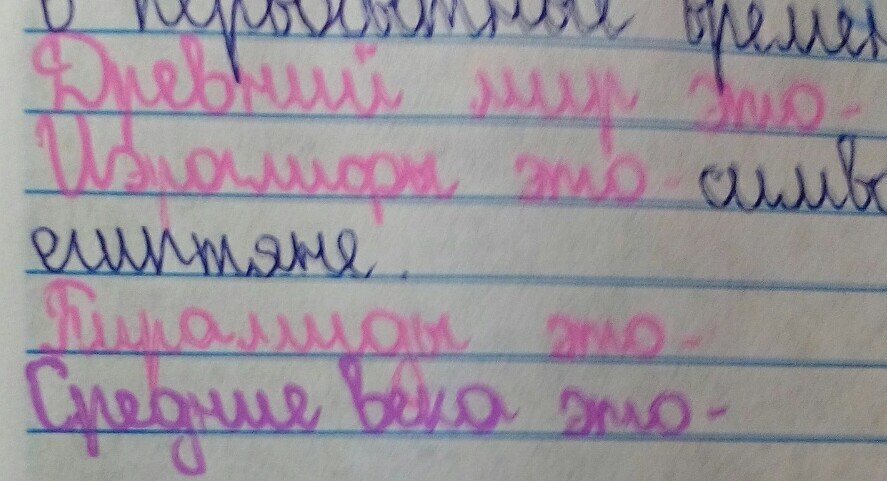 В первобытные времен
Древний мир это-
это- симво
египтяне.
Пирамиды это-
Средние века это-